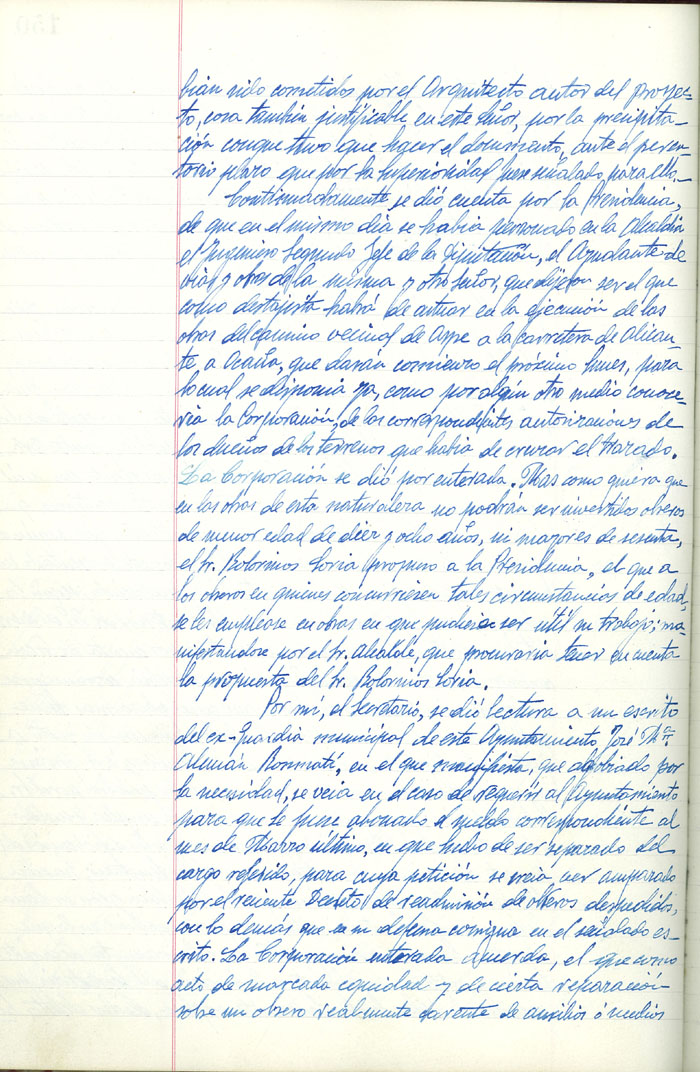 bian sido cometidos por el Arquitecto autor del proyec-
to, cosa también justificable en este Señor, por la precipita-
ción conque tuvo que hacer el documento, ante el peren-
torio plazo que por la superioridad fuese señalado para ello.-
Continuadamente, se dió cuenta por la Presidencia,
de que en el mismo dia se habia personado en la Alcaldia
el Ingeniero Segundo Jefe de la Diputación, el Ayudante de
vias y obras de la misma y otro señor, que dijeron ser el que
como destajista habrá de actuar en la ejecución de las
obras del camino vecinal de Aspe a la carretera de Alican-
te a Ocaña, que darán comienzo el próximo lunes, para
lo cual se disponia ya, como por algún otro medio conoce-
ria la Corporación, de las correspondientes autorizaciones de
los dueños de los terrenos que habia de cruzar el trazado.
La Corporación se dió por enterada. Mas como quiera que
en las obras de esta naturaleza no podrán ser invertidos obreros
de menor edad de diez y ocho años, ni mayores de sesenta,
el Sr. Bolorinos Soria propuso a la Presidencia, el que a
los obreros en quienes concurriesen tales circunstancias de edad,
se les emplease en obras en que pudiera ser útil su trabajo; ma-
nifestandose por el Sr. Alcalde, que procuraria tener en cuenta
la propuesta del Sr. Bolorinos Soria.
Por mi, el Secretario, se dió lectura a un escrito
del ex-Guardia municipal de este Ayuntamiento, José Mª
Alemán Bonmatí, en el que manifiesta, que agobiado por
la necesidad, se veia en el caso de requerir al Ayuntamiento
para que le fuese abonado el sueldo correspondiente al
mes de Marzo último, en que hubo de ser separado del
cargo referido, para cuya petición se creia ver amparado
por el reciente Decreto de readmisión de obreros despedidos,
con lo demás que en su defensa consigna en el señalado es-
crito. La Corporación enterada acuerda, el que como
acto de marcada equidad y de cierta reparación
sobre un obrero realmente carente de auxilios ó medios